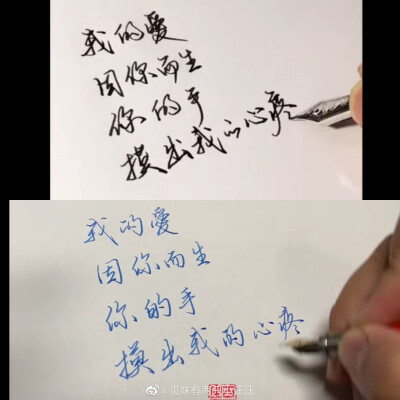 我的愛
因你而生
你的手
摸出我的心疼
我的愛
因你而生
你的手
摸出我的心疼